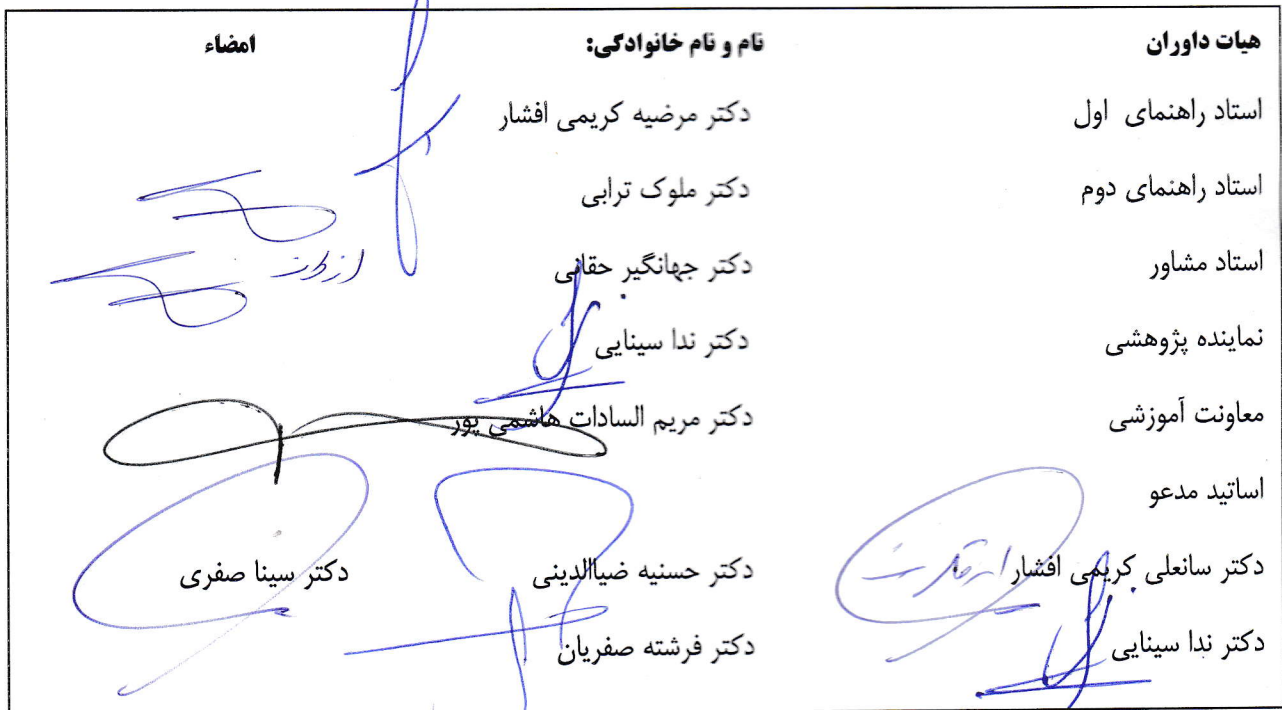 هیات داوران نام و نام خانوادگی: امضاء
استاد راهنمای اول دکتر مرضیه کریمی افشار
استاد راهنمای دوم دکتر ملوک ترابی
استاد مشاور دکتر جهانگیر حقانی
نماینده پژوهشی دکتر ندا سینایی
معاونت آموزشی دکتر مریم السادات هاشمی پور
اساتید مدعو
دکتر سانعلی کریمی افشار دکتر حسنیه ضیاالدینی دکتر سینا صفری
دکتر ندا سینایی دکتر فرشته صفریان